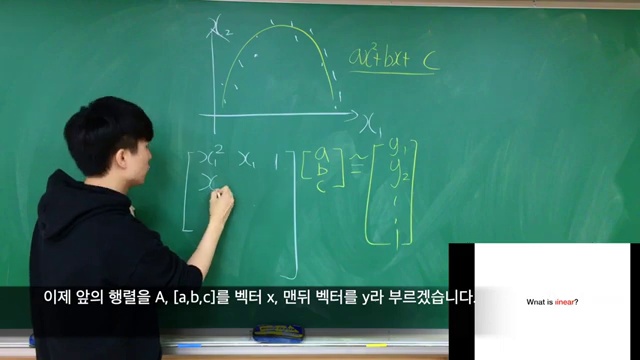 x₂
ax²+bx+ c
x₁
x₁² x₁ 1
x
a
b
c
≅
y₁
y₂
이제 앞의 행렬을 A, [a,b,c]를 벡터 x, 맨뒤 벡터를 y라 부르겠습니다.
What is linear?